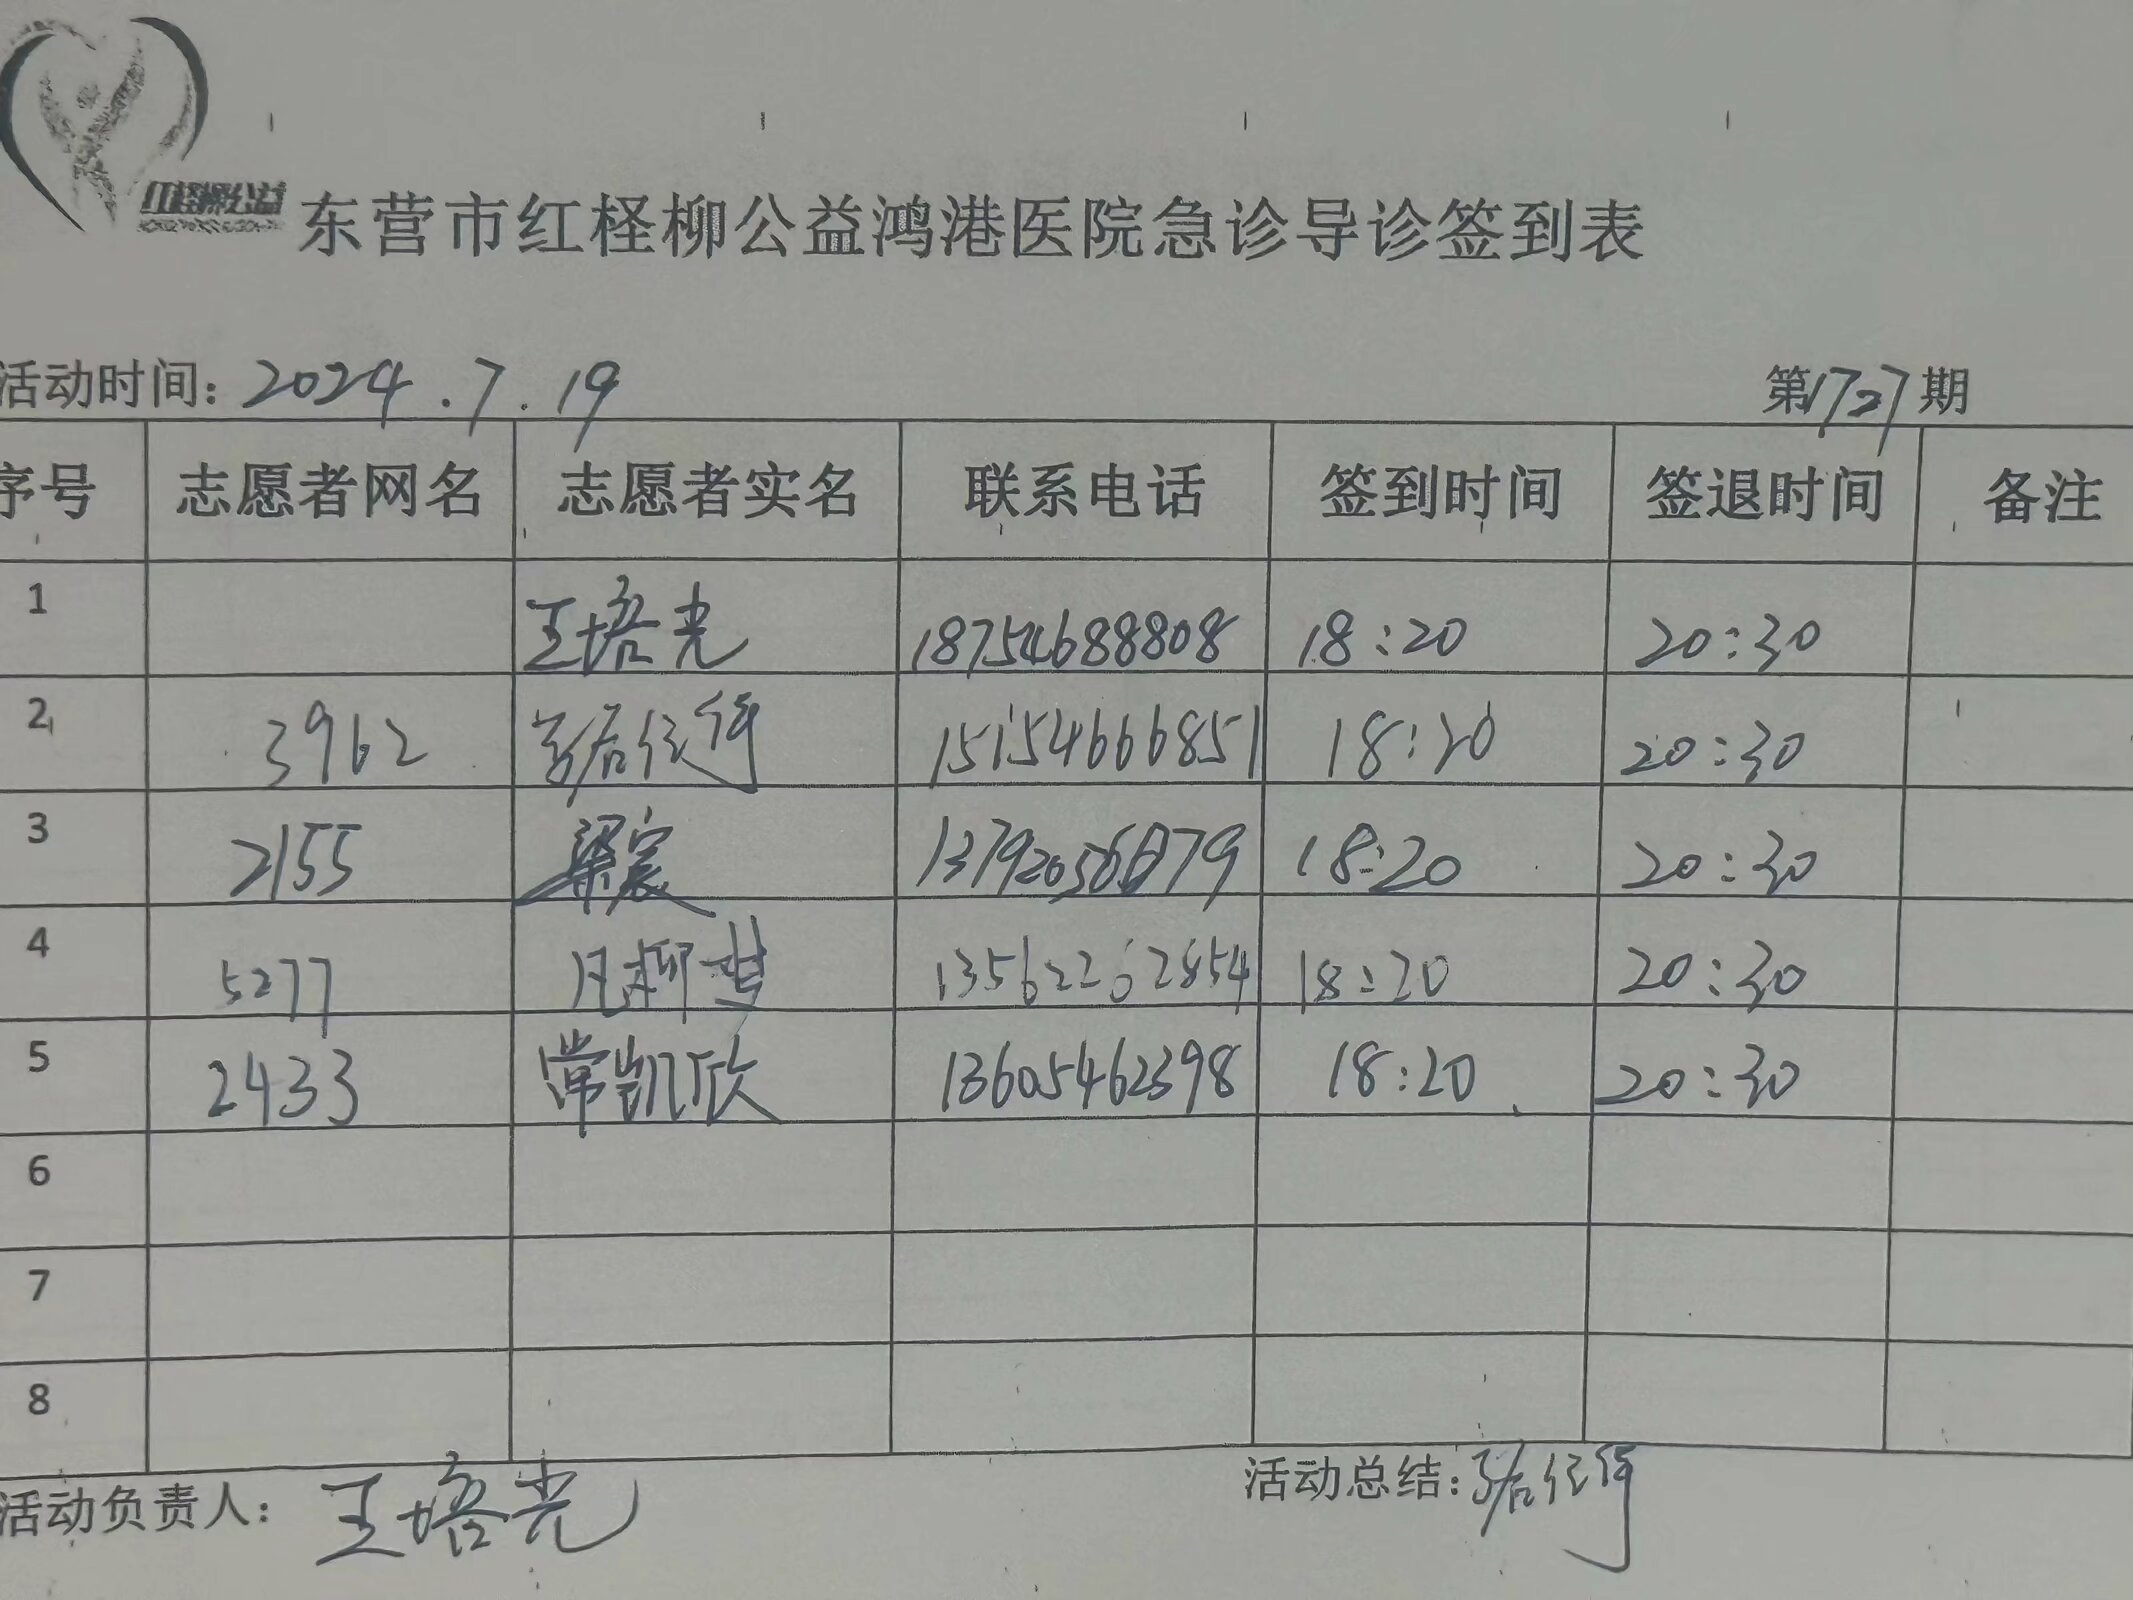 红柽柳公益
东营市红柽柳公益鸿港医院急诊导诊签到表
活动时间：2024.7.19 第1727期
序号 志愿者网名 志愿者实名 联系电话 签到时间 签退时间 备注
1 王培光 18754688808 18:20 20:30
2 3962 15154666851 18:20 20:30
3 2155 梁宸 18:20 20:30
4 5277 13562262854 18:20 20:30
5 2433 常凯欣 13605462398 18:20 20:30
6
7
8
活动负责人：王培光 活动总结：